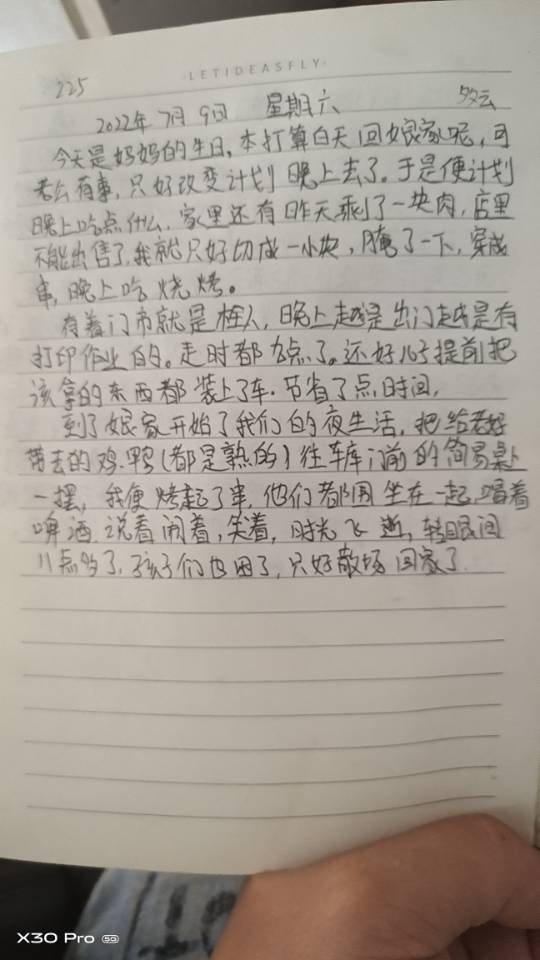 LETIDEASFLY
225
2022年7月9日 星期六 多云
今天是妈妈的生日,本打算白天回娘家呢,可
老公有事,只好改变计划晚上去了。于是便计划
晚上吃点什么,家里还有昨天剩了一块肉,店里
不能出售了,我就只好切成一小块,腌了一下,穿成
串,晚上吃烧烤。
有着门市就是栓人,晚上越是出门越是有
打印作业的。走时都点了。还好儿子提前把
该拿的东西都装上了车.节省了点时间,
到了娘家开始了我们的夜生活,把给老妈
带去的鸡.鸭(都是熟的)往车库门前的简易桌上
一摆,我便烤起了串,他们都围坐在一起,喝着
啤酒,说着闹着,笑着,时光飞逝,转眼间
11点多了,孩子们也困了,只好散场回家了.
X30 Pro 5G